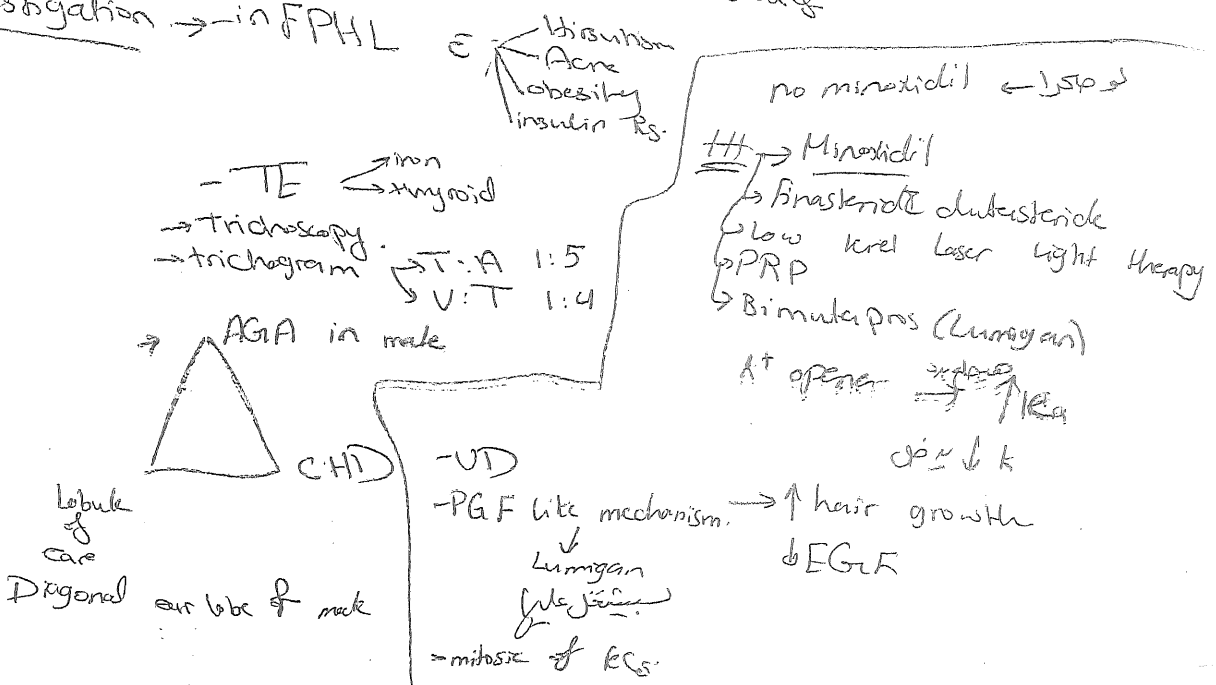 → - in FPHL
c̄ Hirsutism
Acne
obesity
insulin Rs.
- TE → iron
→ thyroid
→ Trichoscopy.
→ trichogram → T:A 1:5
→ V:T 1:4
→ AGA in male
CHD
Lobule
of
Diagonal ear lobe of male
no minoxidil ←
ttt → Minoxidil
→ Finasteride dutasteride
→ Low level Laser Light therapy
→ PRP
→ Bimatapros (Lumigan)
K+ opener → ↑
↓ K
- VD
- PGF like mechanism. → ↑ hair growth
↓ EGF
Lumigan
بيشتغل عليها
- mitosic of KCs.